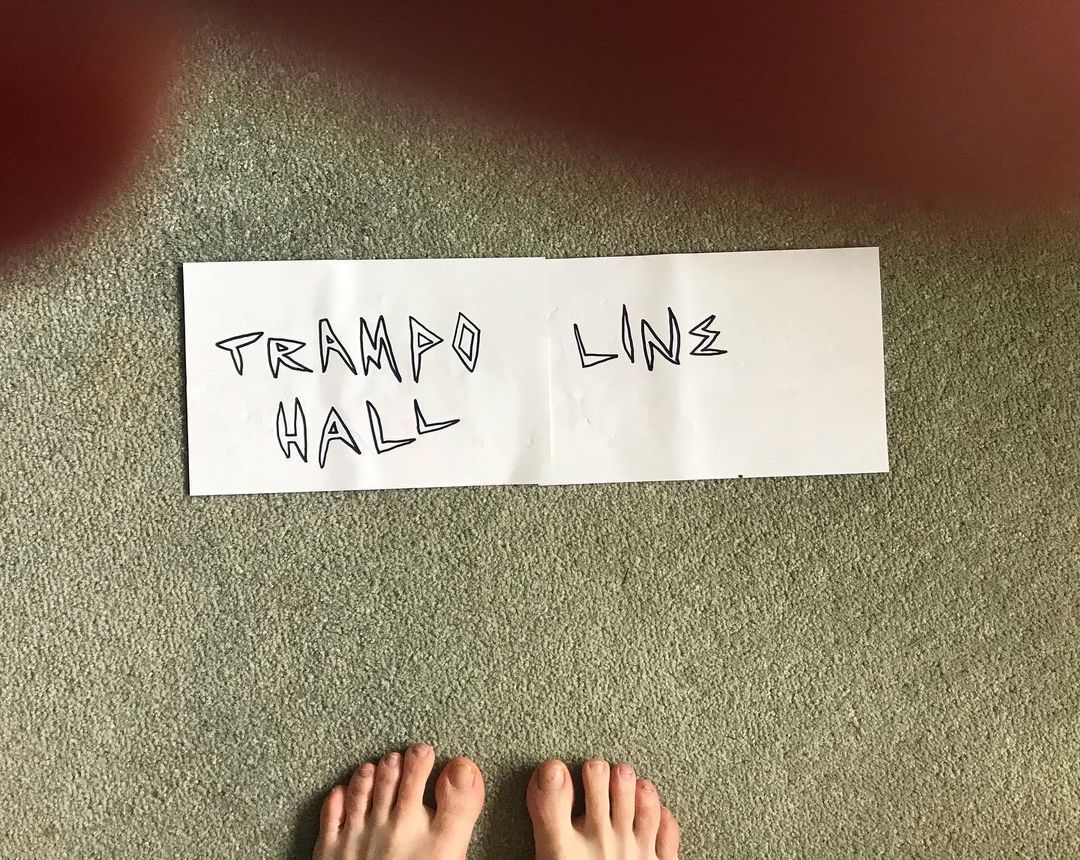 TRAMPO LINE
HALL